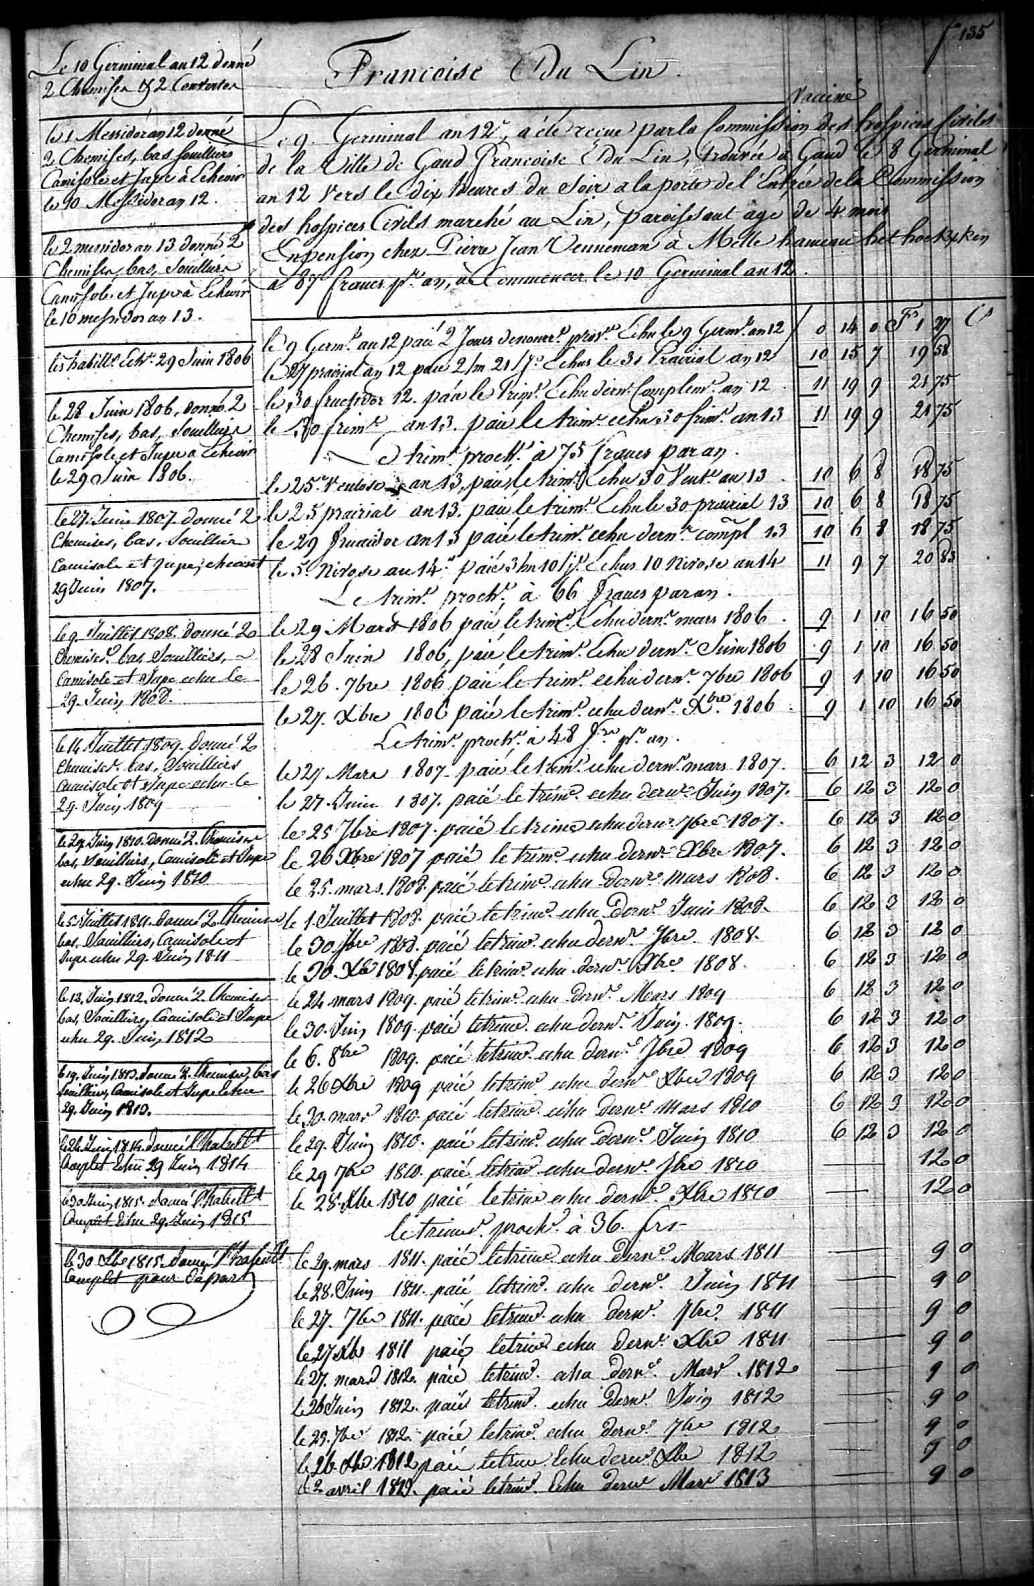 f° 135
Francoise Du Lin.
vacciné
Le 9 Germinal an 12e, a été reçue par la Commission des hospices Civils
de la Ville de Gand Francoise Du Lin, trouvée à Gand le 8 Germinal
an 12 vers les dix heures du Soir a la porte de l'Entrée de la Commission
des hospices Civils marché au Lin, paroissant âgé de 4 mois
En pension chez Pierre Jean Venneman à Melle hameau het
à 87 francs pr an, à Commencer le 10 Germinal an 12.
Le 10 Germinal an 12 donné
2 Chemises & 2
le 1 Messidor an 12 donné
2 Chemises, bas souilliers
Camisole et Jupe à Echeoir
le 10 Messidor an 12.
le 2 messidor an 13 donné 2
Chemises, bas, Souilliers
Camisole et Jupe à Echeoir
le 10 messidor an 13.
29 Juin 1806
le 28 Juin 1806, donné 2
Chemises, bas, Souilliers
Camisole et Jupe à Echeoir
le 29 Juin 1806.
le 27 Juin 1807 donné 2
Chemises, bas, Souilliers
Camisole et Jupe, echeant
29 Juin 1807.
le 9 Juillet 1808. donné 2
Chemises bas Souilliers,
Camisole et Jupe echu le
29. Juin 1808.
le 14 Juillet 1809. donné 2
Chemises. bas, Souilliers
Camisole et Jupe echu le
29. Juin 1809
le 29 Juin 1810. donné 2. Chemises
bas, Souilliers, Camisole et Jupe
echu 29. Juin 1810
le 5 Juillet 1811. donné 2 Chemises
bas, Souilliers, Camisole et
Jupe echu 29. Juin 1811
le 13 Juin 1812. donné 2 Chemises
bas, Souilliers, Camisole et Jupe
echu 29. Juin 1812
le 19 Juin 1813. donné 2 Chemises, bas
Souilliers, Camisole et Jupe echu
29. Juin 1813.
le 24 Juin 1814. donné l'habillt
Complet Echu 29 Juin 1814
le 30 Juin 1815. donné l'habillt
Complet Echu 29. Juin 1815
le 30 Xbre 1815. donné l'habillt
Complet pour Départ
le 9 Germl an 12 paié 2 Jours Echu le 9 Germl an 12 0 14 0 Fs 1 27
le 27 prairial an 12 paié 2/m 21/js Echus le 30 Prairial an 12 10 15 7 19 58
le 30 fructidor 12. paié le trimre Echu dernr Complemre an 12 11 19 9 21 75
le 30 frimre an 13. paié le trimre echu 30 frimre an 13 11 19 9 21 75
Le trimre prochn à 75 francs par an.
le 25 Ventose an 13, paié le trimre Echu 30 Vente an 13 10 6 8 18 75
le 25 prairial an 13. paié le trimre Echu le 30 prairial 13 10 6 8 18 75
le 29 fructidor an 13 paié le trimre echu dernr compl 13 10 6 8 18 75
le 5 Nivose an 14 paié 3/m 10/js Echus 10 Nivose an 14 11 9 7 20 83
Le trimre prochn à 66 francs par an.
le 29 Mars 1806 paié le trimre Echu dernr mars 1806 9 1 10 16 50
le 28 Juin 1806, paié le trimre Echu dernr Juin 1806 9 1 10 16 50
le 26. 7bre 1806 paié le trimre echu dernr 7bre 1806 9 1 10 16 50
le 27. Xbre 1806 paié le trimre echu dernr Xbre 1806 9 1 10 16 50
Le trimre prochn à 48 frs pr an.
le 27 Mars 1807. paié le trimre echu dernr mars 1807. 6 12 3 12 0
le 27. Juin 1807. paié le trimre echu dernr Juin 1807. 6 12 3 12 0
le 25 7bre 1807. paié le trimre echu dernr 7bre 1807. 6 12 3 12 0
le 26 Xbre 1807 paié le trimre echu dernr Xbre 1807. 6 12 3 12 0
le 25. mars. 1808. paié le trimre echu dernr mars 1808. 6 12 3 12 0
le 1 Juillet 1808. paié le trimre echu dernr Juin 1808. 6 12 3 12 0
le 30 7bre 1808. paié le trimre echu dernr 7bre 1808. 6 12 3 12 0
le 30. Xbre 1808 paié le trimre echu dernr Xbre 1808. 6 12 3 12 0
le 24 mars 1809. paié le trimre echu dernr Mars 1809 6 12 3 12 0
le 30. Juin 1809. paié le trimre echu dernr Juin. 1809. 6 12 3 12 0
le 6. 8bre 1809. paié le trimre echu dernr 7bre 1809 6 12 3 12 0
le 26 Xbre 1809 paié le trimre echu dernr Xbre 1809 6 12 3 12 0
le 30 mars 1810 paié le trimre echu dernr mars 1810 6 12 3 12 0
le 29. Juin 1810. paié le trimre echu dernr Juin 1810 6 12 3 12 0
le 29 7bre 1810. paié le trimre echu dernr 7bre 1810 12 0
le 28. Xbre 1810 paié le trimre echu dernr Xbre 1810 12 0
le trimre prochn à 36. frs
le 29. mars 1811. paié le trimre echu dernr Mars 1811 9 0
le 28. Juin 1811. paié le trimre echu dernr Juin 1811 9 0
le 27. 7bre 1811. paié le trimre echu dernr 7bre 1811 9 0
le 27 Xbre 1811 paié le trimre echu dernr Xbre 1811 9 0
le 27. mars 1812. paié le trimre echu dernr Mars 1812 9 0
le 26 Juin 1812. paié le trimre echu dernr Juin 1812 9 0
le 29. 7bre 1812. paié le trimre echu dernr 7bre 1812 9 0
le 26. Xbre 1812 paié le trimre Echu dernr Xbre 1812 9 0
le 2 avril 1813. paié le trimre Echu dernr Mars 1813 9 0